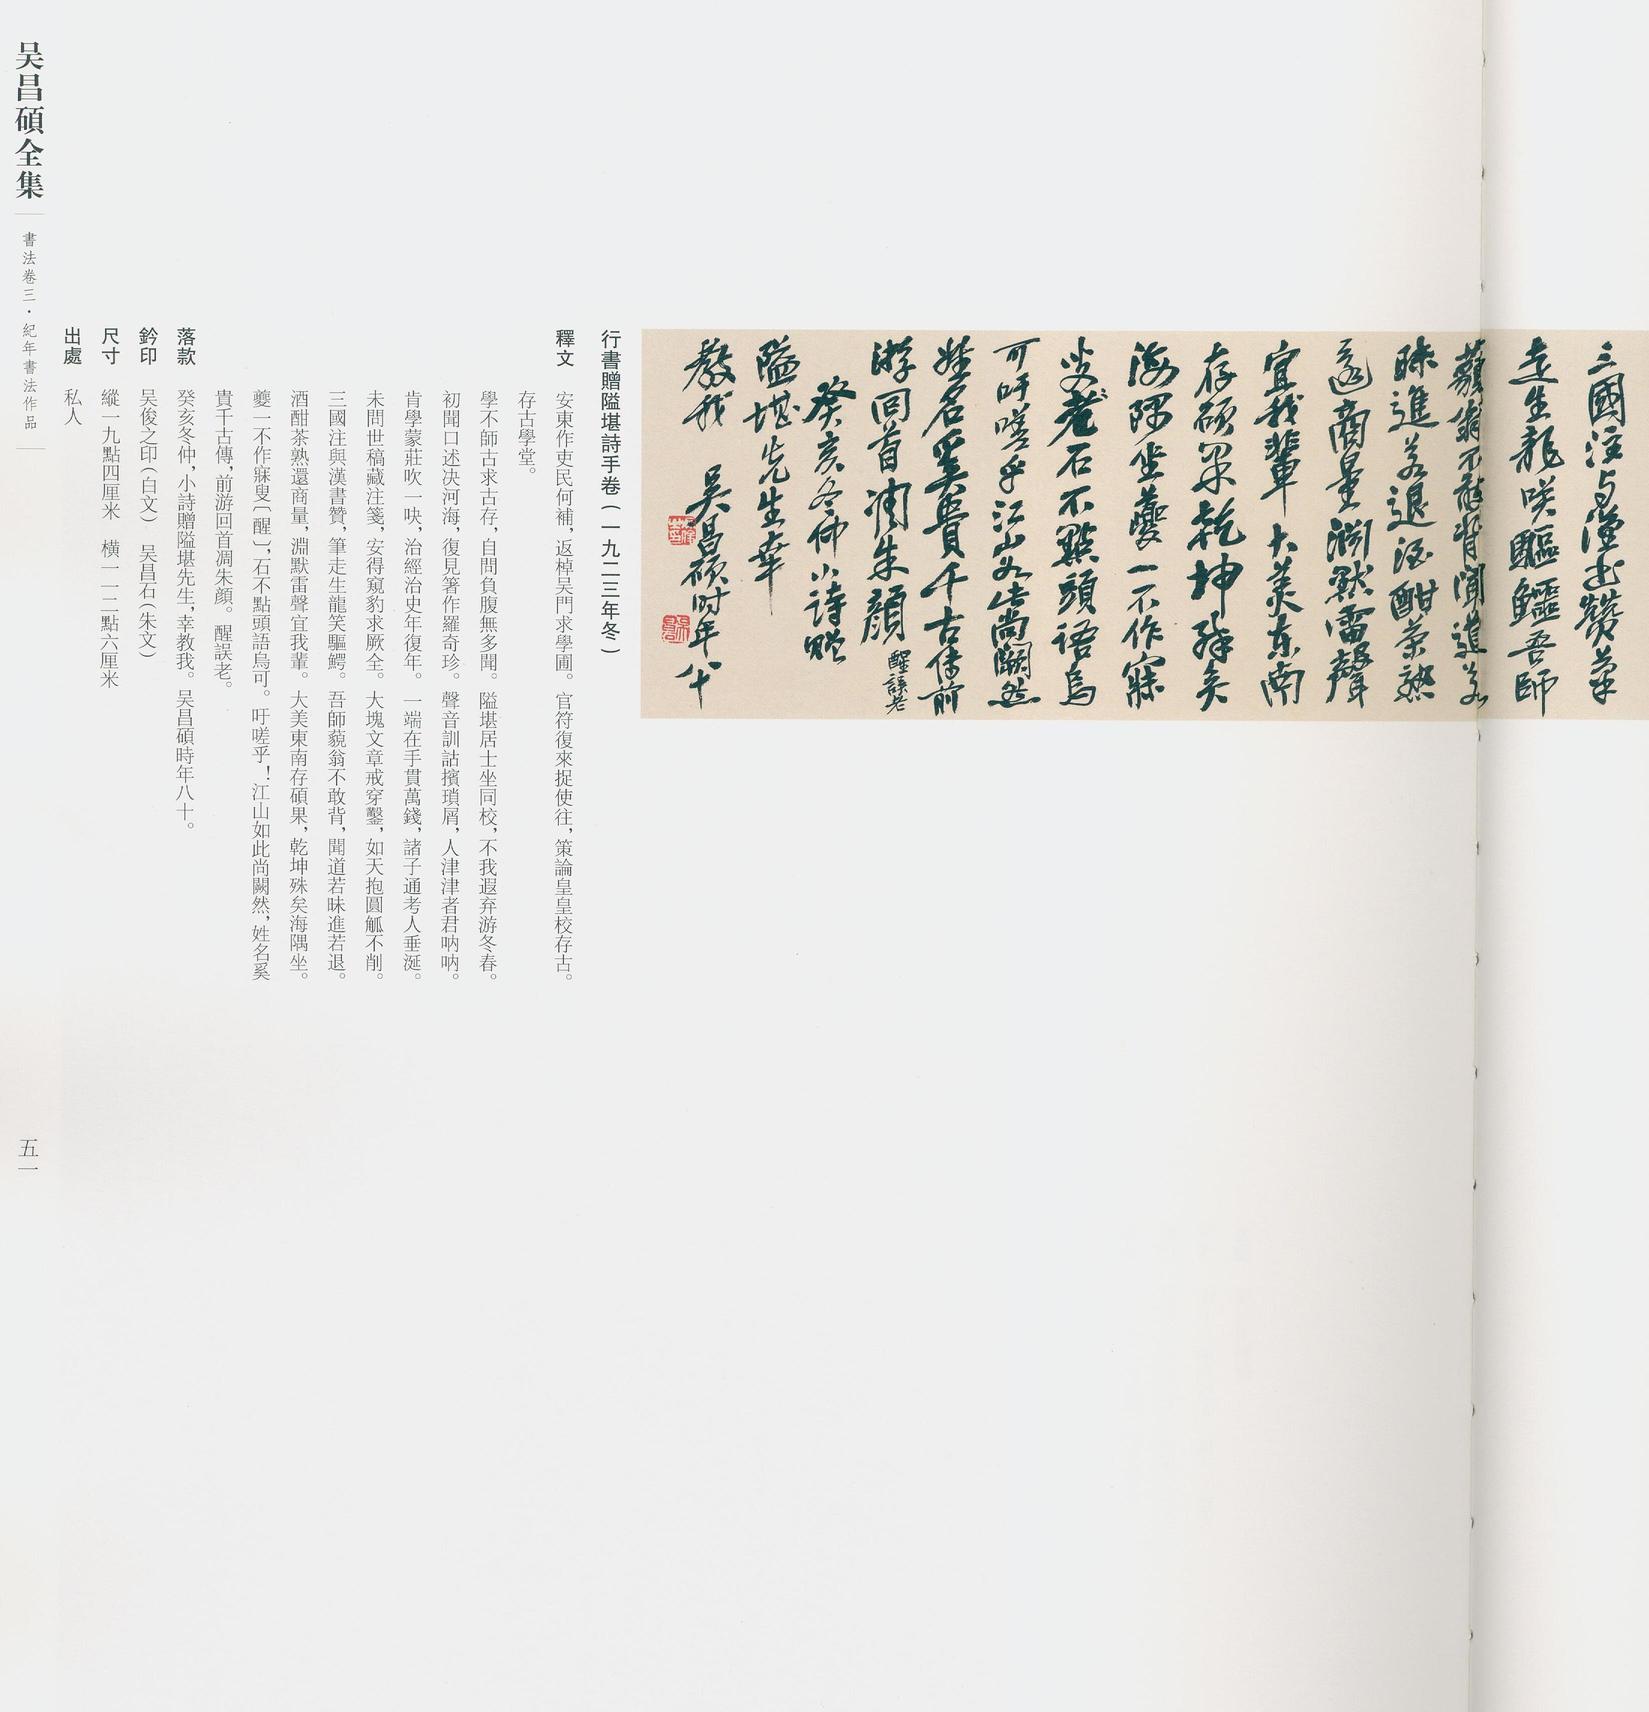 三國注與漢書贊筆
走生龍咲驅鱷吾師
藐翁不敢背聞道若
昧進若退酒酣茶熟
還商量淵默雷聲
宜我輩大美東南
存碩果乾坤殊矣
海隅坐夔一不作寐
叟老石不點頭語烏
可吁嗟乎江山如此尚闕然
姓名奚貴千古傳前
游回首凋朱顏醒誤老
癸亥冬仲小詩贈
隘堪先生幸
教我 吳昌碩時年八十
行書贈隘堪詩手卷(一九二三年冬)
釋文 安東作吏民何補,返棹吴門求學圃。官符復來捉使往,策論皇皇校存古。
存古學堂。
學不師古求古存,自問負腹無多聞。隘堪居士坐同校,不我遐弃游冬春。
初聞口述决河海,復見箸作羅奇珍。聲音訓詁擯瑣屑,人津津者君呐呐。
肯學蒙莊吹一吷,治經治史年復年。一端在手貫萬錢,諸子通考人垂涎。
未問世稿藏注箋,安得窺豹求厥全。大塊文章戒穿鑿,如天抱圓觚不削。
三國注與漢書贊,筆走生龍笑驅鰐。吾師藐翁不敢背,聞道若昧進若退。
酒酣茶熟還商量,淵默雷聲宜我輩。大美東南存碩果,乾坤殊矣海隅坐。
夔一不作寐叟〔醒〕,石不點頭語烏可。吁嗟乎!江山如此尚闕然,姓名奚
貴千古傳,前游回首凋朱顏。醒誤老。
落款 癸亥冬仲,小詩贈隘堪先生,幸教我。吴昌碩時年八十。
鈐印 吴俊之印(白文) 吴昌石(朱文)
尺寸 縱一九點四厘米 橫一一二點六厘米
出處 私人
吴昌碩全集
書法卷三·紀年書法作品
五一